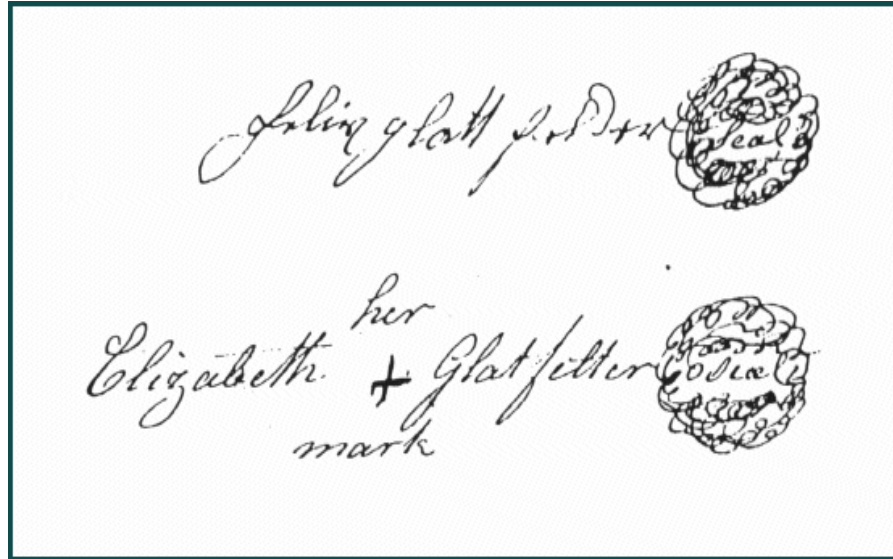 felix glatt felder seal
her
Elizabeth + Glatfelter seal
mark